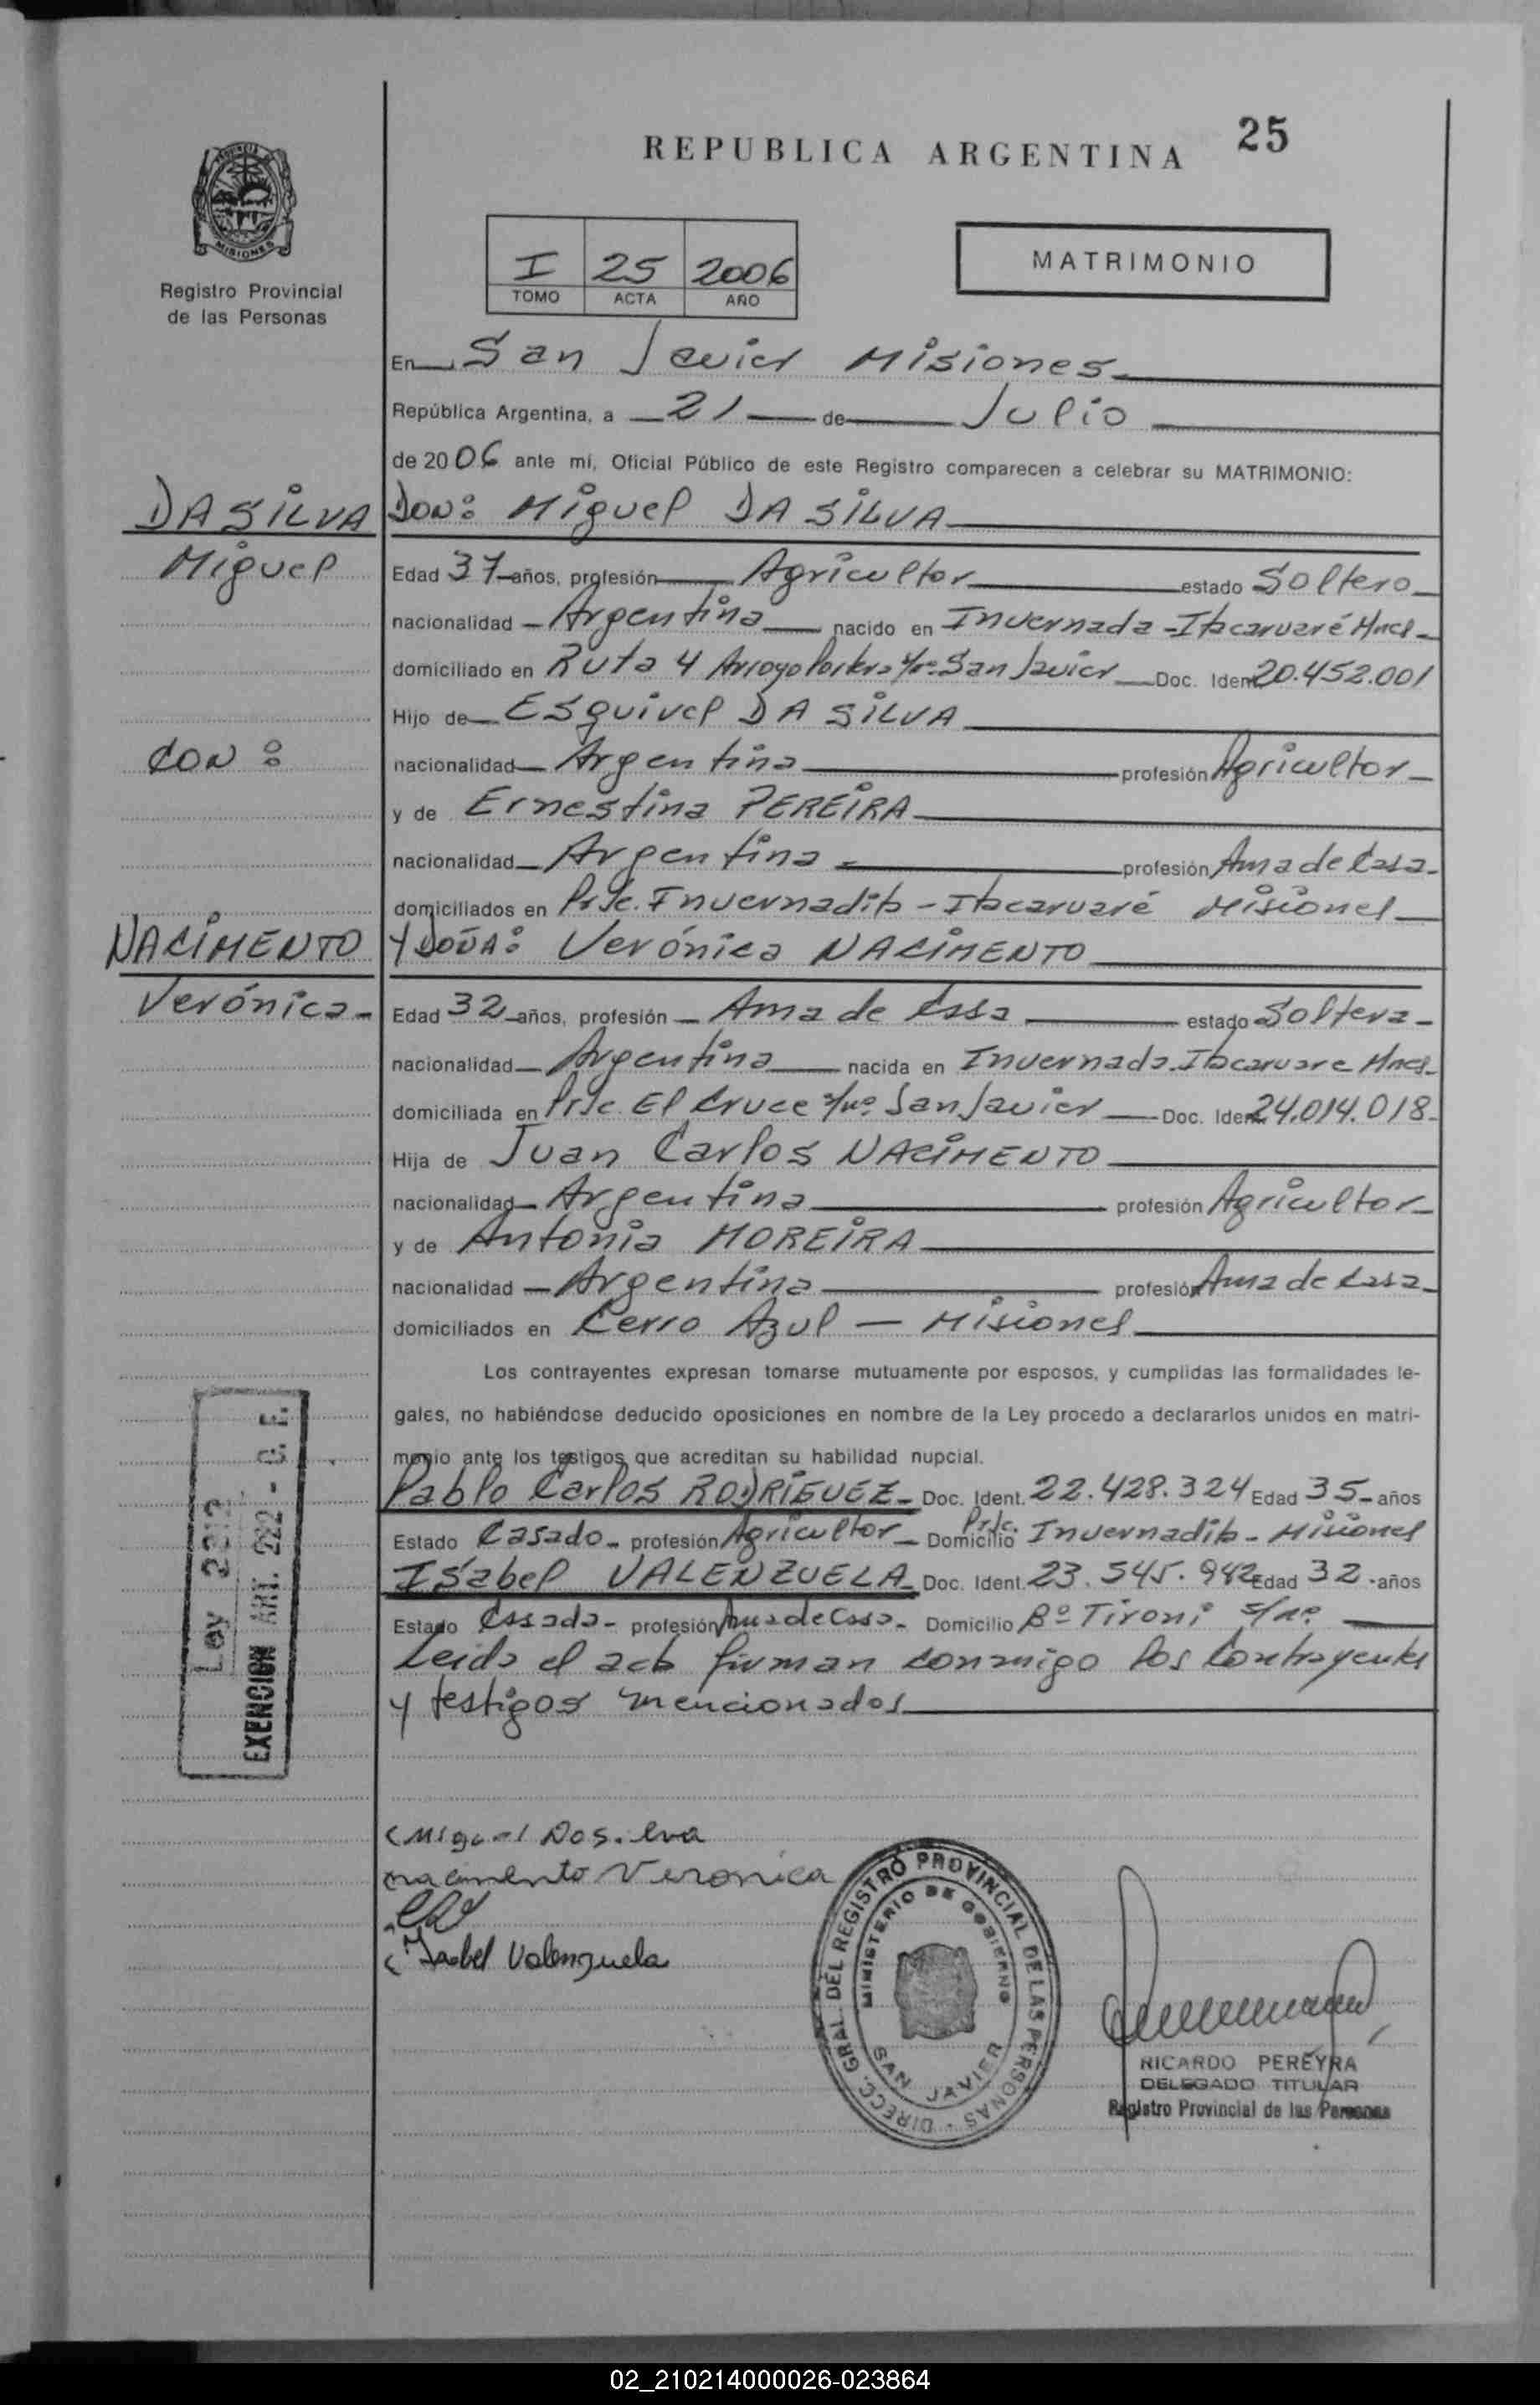 25
REPUBLICA ARGENTINA
PROVINCIA DE
MISIONES
Registro Provincial
de las Personas
MATRIMONIO
I 25 2006
TOMO ACTA AÑO
En San Javier Misiones
República Argentina, a 21 de Julio
de 2006 ante mí, Oficial Público de este Registro comparecen a celebrar su MATRIMONIO:
DA SILVA
Miguel
CON:
NACIMENTO
Verónica
DON: Miguel DA SILVA
Edad 37 años, profesión Agricultor estado Soltero
nacionalidad Argentina nacido en Invernada - Itacaruaré Mnes
domiciliado en Ruta 4 Arroyo Portera s/nº San Javier Doc. Ident. 20.452.001
Hijo de Esquivel DA SILVA
nacionalidad Argentina profesión Agricultor
y de Ernestina PEREIRA
nacionalidad Argentina profesión Ama de Casa
domiciliados en Prje. Invernadita - Itacaruaré Misiones
Y DOÑA: Verónica NACIMENTO
Edad 32 años, profesión Ama de Casa estado Soltera
nacionalidad Argentina nacida en Invernada Itacaruare Mnes
domiciliada en Prje. El Cruce s/nº San Javier Doc. Ident. 24.014.018
Hija de Juan Carlos NACIMENTO
nacionalidad Argentina profesión Agricultor
y de Antonia MOREIRA
nacionalidad Argentina profesión Ama de Casa
domiciliados en Cerro Azul - Misiones
Los contrayentes expresan tomarse mutuamente por esposos, y cumplidas las formalidades le-
gales, no habiéndose deducido oposiciones en nombre de la Ley procedo a declararlos unidos en matri-
monio ante los testigos que acreditan su habilidad nupcial.
Pablo Carlos RODRÍGUEZ Doc. Ident. 22.428.324 Edad 35 años
Estado Casado profesión Agricultor Domicilio Prje. Invernadita - Misiones
Isabel VALENZUELA Doc. Ident. 23.545.942 Edad 32 años
Estado Casada profesión Ama de Casa Domicilio Bº Tironi s/nº
Leida el acta firman conmigo los Contrayentes
y testigos mencionados
Ley 2312
EXENCION ART. 222 - C. F.
Miguel Dasilva
nacimento Veronica
Isabel Valenzuela
DIRECC. GRAL. DEL REGISTRO PROVINCIAL DE LAS PERSONAS
MINISTERIO DE GOBIERNO
SAN JAVIER
RICARDO PEREYRA
DELEGADO TITULAR
Registro Provincial de las Personas
02_210214000026-023864